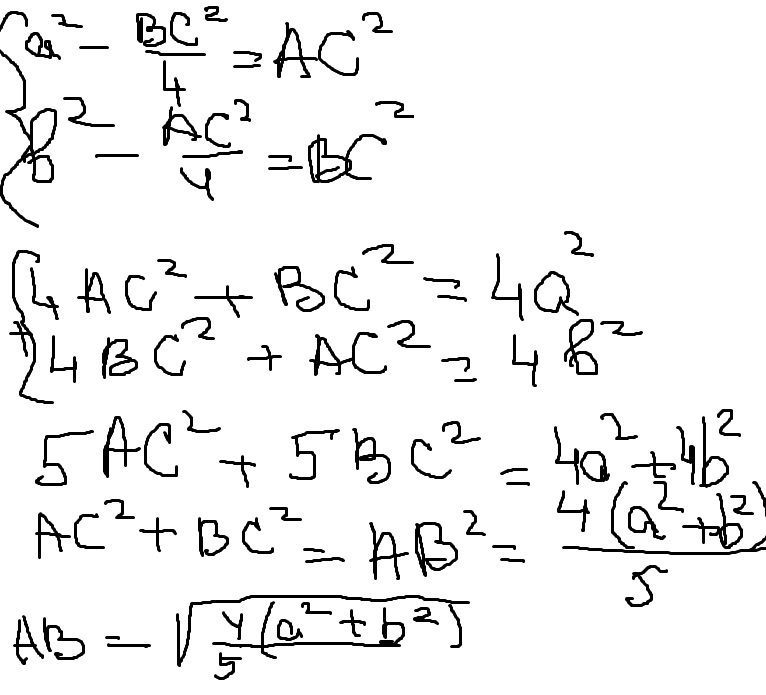 { a² - BC²/4 = AC²
b² - AC²/4 = BC²
{ 4AC² + BC² = 4a²
+ 4BC² + AC² = 4b²
5AC² + 5BC² = 4a² + 4b²
AC² + BC² = AB² = 4(a² + b²)/5
AB = √(4/5(a² + b²))